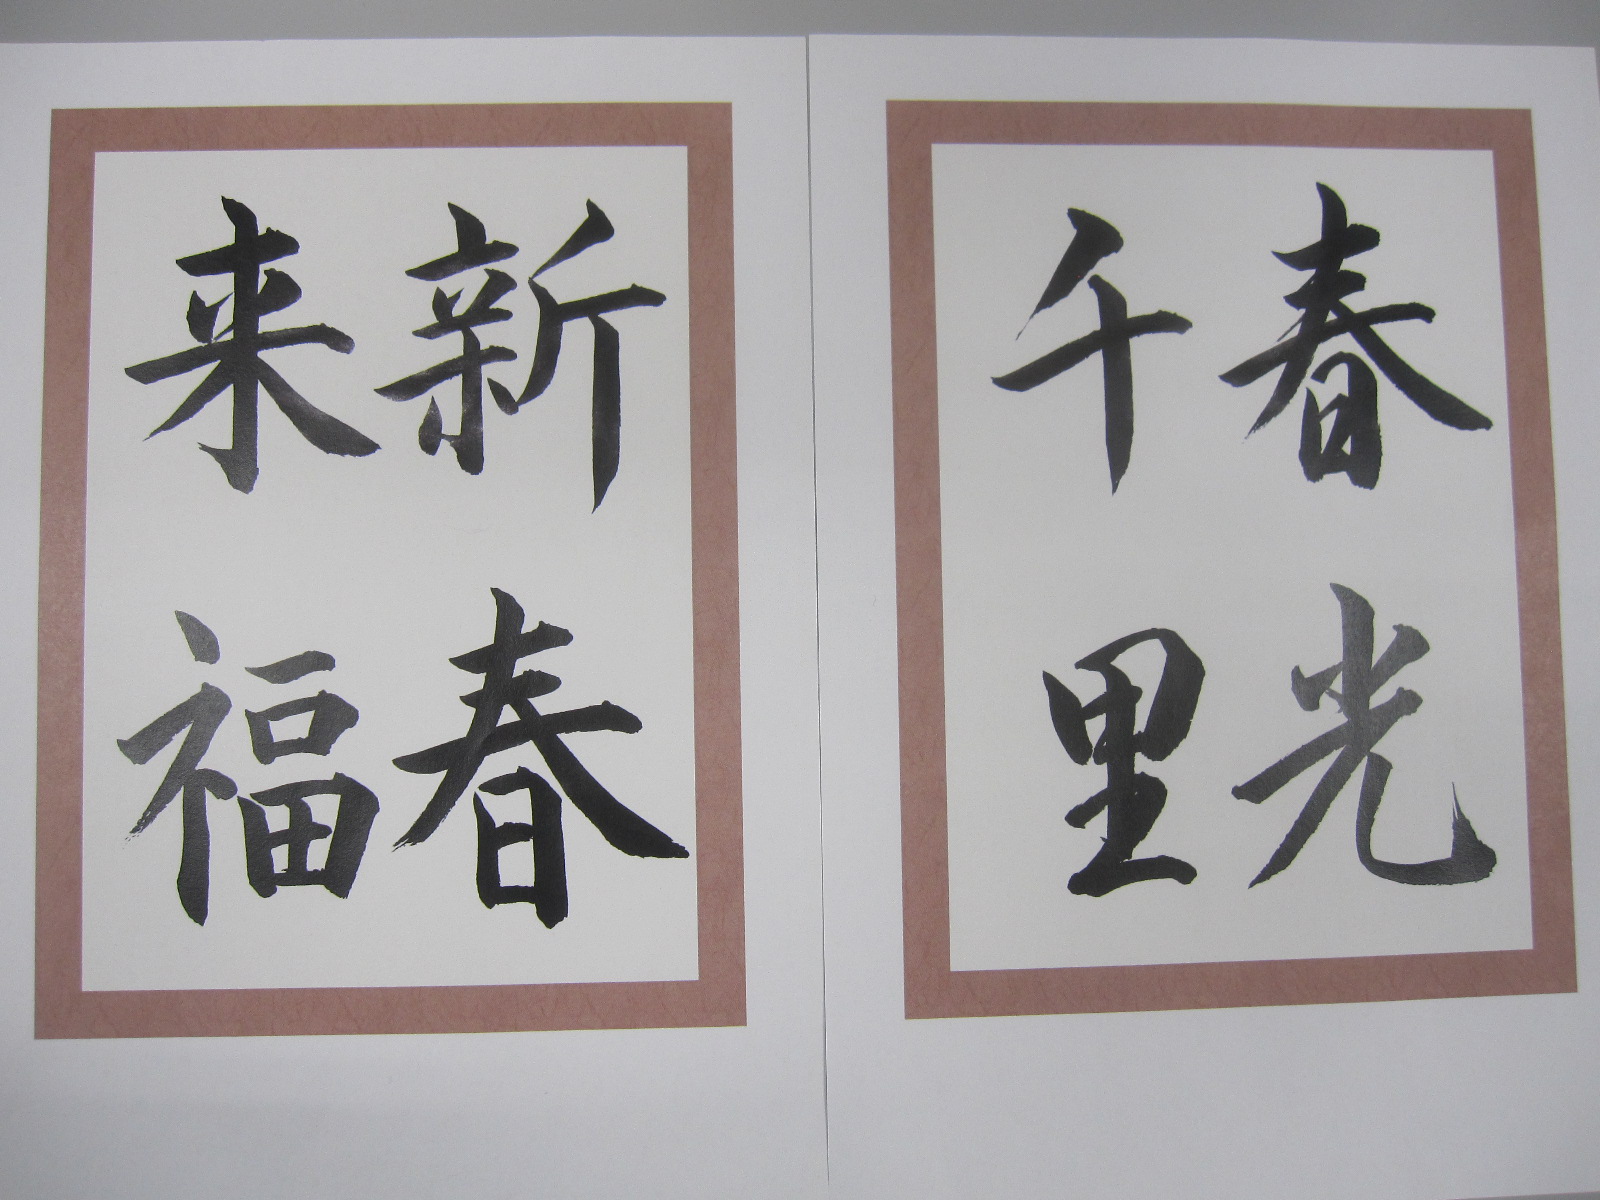 春光
千里
新春
来福